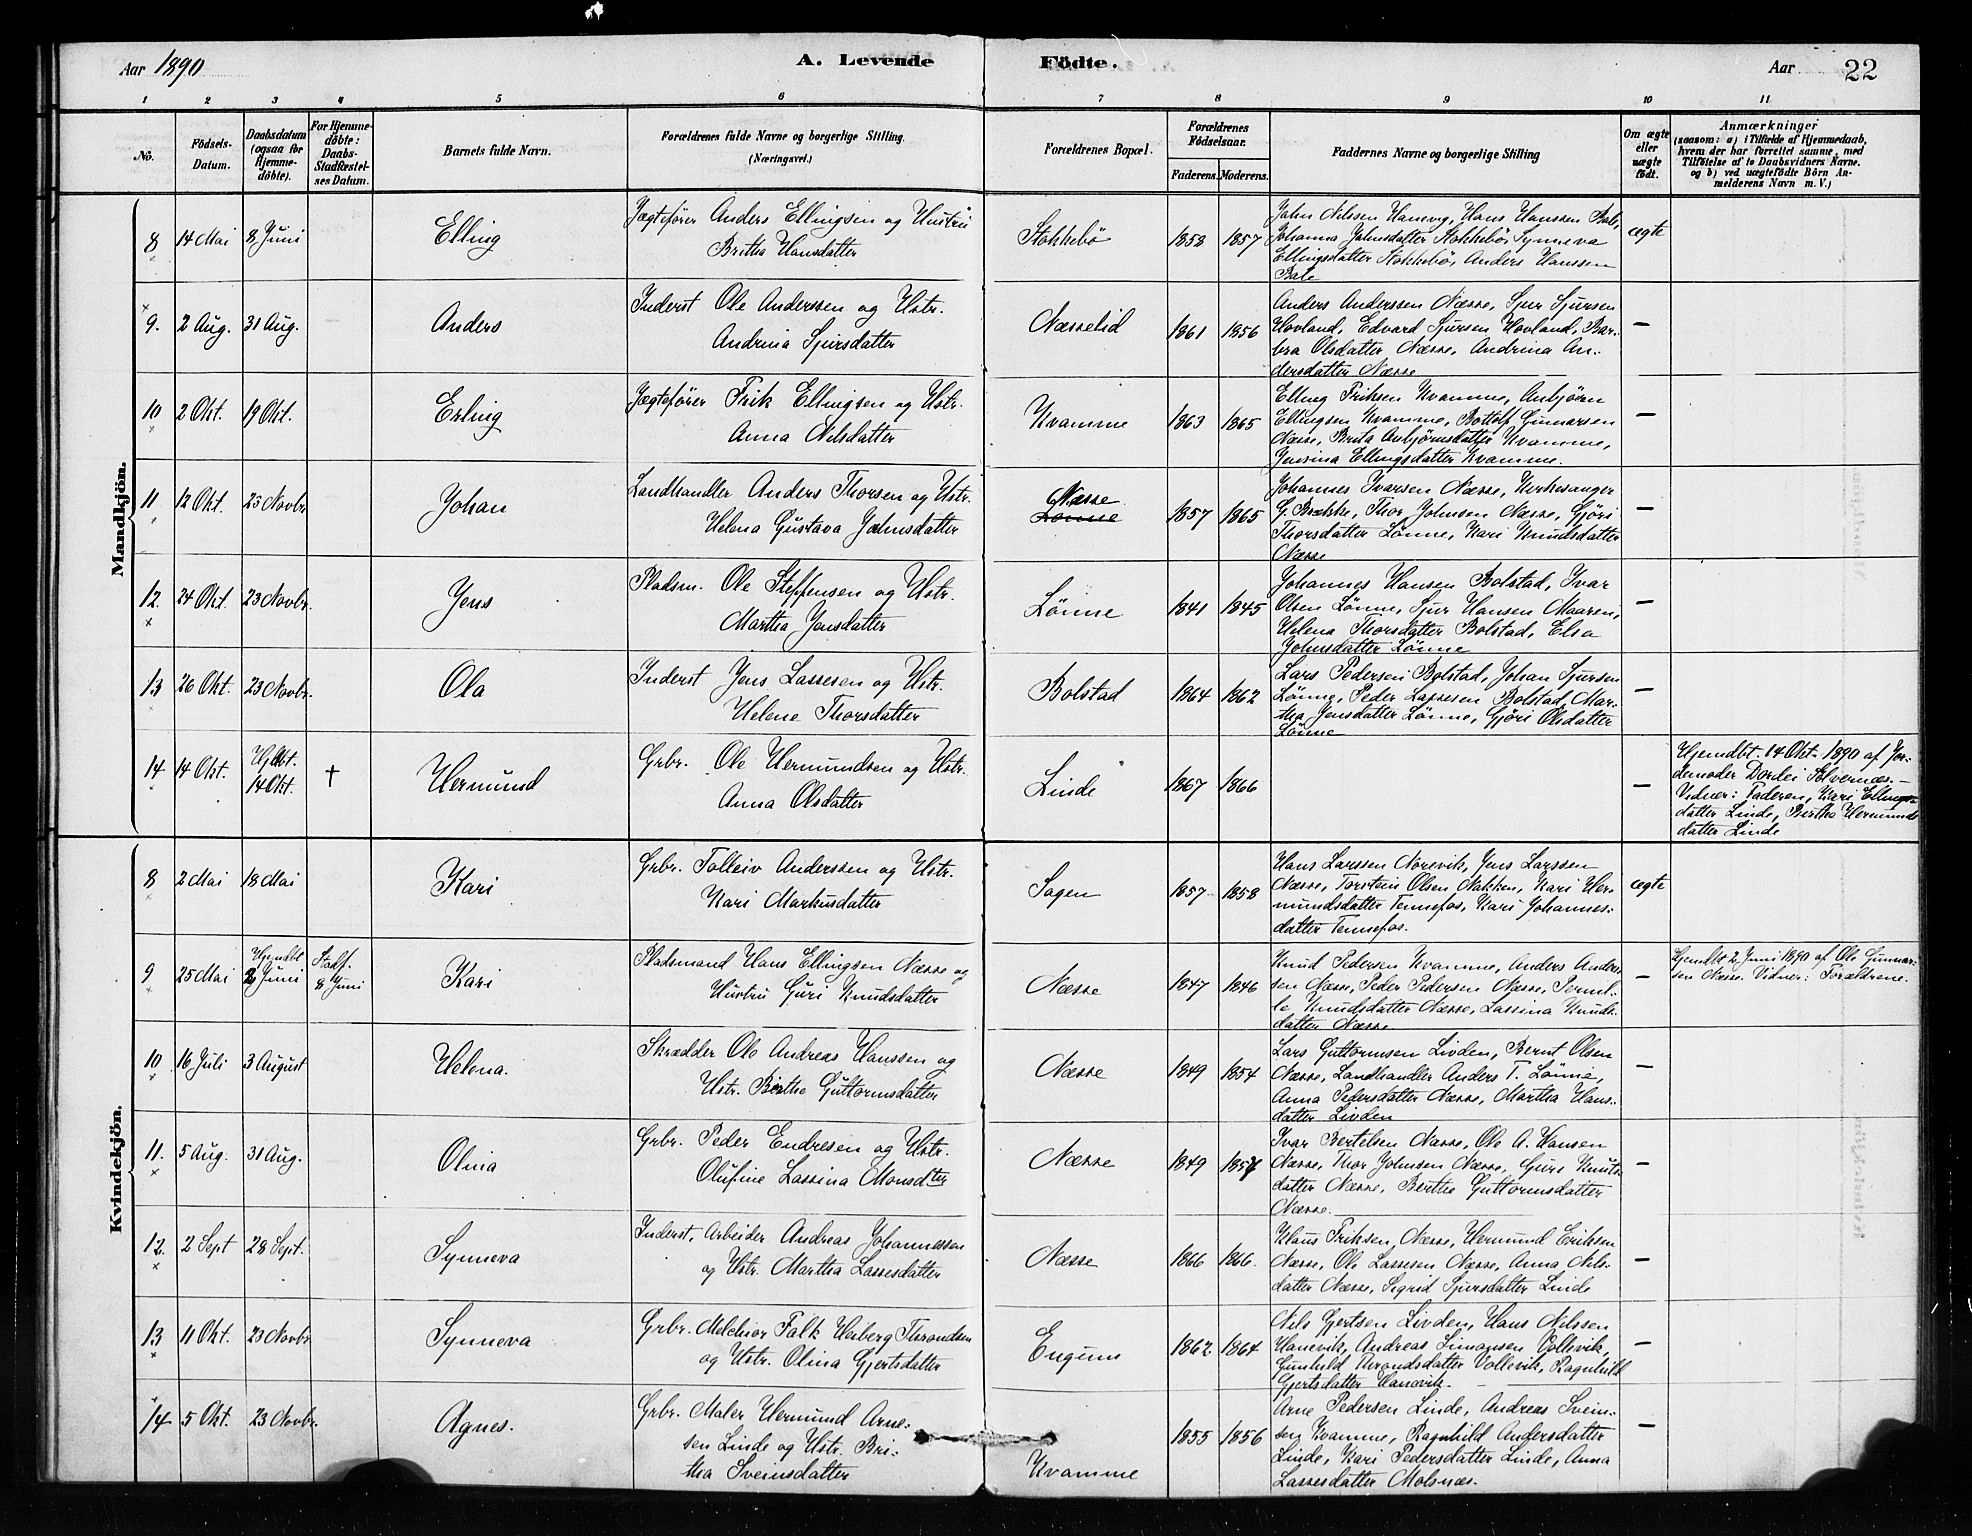 Aar 1890 A. Levende Födte. Aar 22
1 2 3 4 5 6 7 8 9 10 11
No. Födsels-Datum. Daabsdatum (ogsaa for Hjemme-döbte). For Hjemme-döbte: Daabs-Stadfæstel-ses Datum. Barnets fulde Navn. Forældrenes fulde Navne og borgerlige Stilling. (Næringsvei.) Forældrenes Bopæl. Forældrenes Födselsaar. Faderens. Moderens. Faddernes Navne og borgerlige Stilling Om ægte eller uægte födt. Anmærkninger (saasom: a) i Tilfælde af Hjemmedaab, hvem der har forrettet samme, med Tilföielse af to Daabsvidners Navne. og b) ved uægtefödte Börn An-melderens Navn m. V.)
Mandkjön.
8 14 Mai 8 Juni Elling Jægtefører Anders Ellingsen og Hustru
Britha Hansdatter Stokkebø 1858 1857 ægte
John Nilssen Hanevig, Hans Hanssen Bale,
Johanna Johnsdatter Stokkebø, Synneva
Ellingsdatter Stokkebø, Anders Hanssen
Bale
9. 2 Aug. 31 Aug. Anders Inderst Ole Anderssen og Hstr.
Andrina Sjursdatter Næsselid 1861 1856 —
Anders Anderssen Næsse, Sjur Sjursen
Hovland, Edvard Sjursen Hovland, Bar-
bra Olsdatter Næsse, Andrina An-
dersdatter Næsse
10 2 Okt. 19 Okt. Erling Jægtefører Frik Ellingsen og Hstr.
Anna Nilsdatter Kvamme 1863 1865 —
Elling Friksen Kvamme, Anbjørn
Ellingsen Kvamme, Bottolf Gunnarsen
Næsse, Brita Anbjørnsdatter Kvamme,
Jensina Ellingsdatter Kvamme.
11 12 Okt. 23 Novbr. Johan Landhandler Anders Thorsen og Hstr.
Helena Gustava Johnsdatter Næsse Lønne 1857 1865 —
Johannes Ivarsen Næsse, Kirkesanger
G. Brække, Thor Johnsen Næsse, Gjøri
Thorsdatter Lønne, Kari Knudsdatter
Næsse
12. 24 Okt. 23 Novbr. Jens Pladsm. Ole Steffensen og Hstr.
Martha Jensdatter Lønne 1841 1845 —
Johannes Hansen Bolstad, Ivar
Olsen Lønne, Sjur Hansen Maaren,
Helena Thorsdatter Bolstad, Elsa
Johnsdatter Lønne
13 26 Okt. 23 Novbr. Ola Inderst Jens Lassesen og Hstr.
Helene Thorsdatter Bolstad 1864 1862 —
Lars Pedersen Bolstad, Johan Sjursen
Lønne, Peder Lassesen Bolstad, Mar-
tha Jensdatter Lønne, Gjøri Olsdatter
Lønne
14 14 Okt. Hjdbt. 14 Okt. † Hermund Grbr. Ole Hermundsen og Hstr.
Anna Olsdatter Linde 1867 1866 —
Hjemdbt 14 Okt. 1890 af Jor-
demoder Dordei Sølvernæs.—
Vidner: Faderen, Kari Ellings-
datter Linde, Bertha Hermunds
datter Linde
Kvindekjön.
8 2 Mai 18 Mai Kari Grbr. Tolleiv Anderssen og Hstr.
Kari Markusdatter Sagen 1857 1858 ægte
Hans Larssen Norevik, Jens Larssen
Næsse, Torstein Olsen Nakken, Kari Her-
mundsdatter Tennefos, Kari Johannes-
datter Tennefos.
9 25 Mai Hjemdbt 2 Juni Stadf. 8 Juni Kari Pladsmand Hans Ellingsen Næsse og
Hustru Guri Knudsdatter Næsse 1847 1846 —
Knud Pedersen Kvamme, Anders Anders-
sen Næsse, Peder Pedersen Næsse, Pernil-
le Knudsdatter Næsse, Lassina Knuds-
datter Næsse
Hjemdbt 2 Juni 1890 af Ole Gunnar-
sen Næsse. Vidner: Forældrene.
10 16 Juli 3 August Helena. Skrædder Ole Andreas Hanssen og
Hstr. Birthe Guttormsdatter Næsse 1849 1854 —
Lars Guttormsen Livden, Bernt Olsen
Næsse, Landhandler Anders T. Lønne,
Anna Pedersdatter Næsse, Martha Hans-
datter Livden
11. 5 Aug. 31 Aug. Olina Grbr. Peder Endresen og Hstr.
Olufine Lassina Monsdter Næsse 1849 1857 —
Ivar Bertelsen Næsse, Ole A. Hansen
Næsse, Thor Johnsen Næsse, Guri Knuts-
datter Næsse, Berthe Guttormsdatter
Næsse.
12. 2 Sept 28 Sept. Synneva Inderst, Arbeider Andreas Johannessen
og Hstr. Martha Lassesdatter Næsse 1866 1866. —
Klaus Friksen, Næsse, Hermund Eriksen
Næsse, Ole Lassesen Næsse, Anna Nils-
datter Næsse, Sigrid Sjursdatter Linde
13 11 Okt. 23 Novbr Synneva Grbr. Melchior Falk Heiberg Throndsen
og Hstr. Olina Gjertsdatter Engum 1862 1864 —
Nils Gjertsen Livden, Hans Nilssen
Hanevik, Andreas Simonsen Vollevik,
Gunhild Arondsdatter Vollevik, Ragnhild
Gjertsdatter Hanevik.
14 5 Okt. 23 Novbr. Agnes. Grbr. Maler Hermund Arne-
sen Linde og Hstr. Bri-
tha Sveinsdatter Kvamme 1855 1856 —
Arne Pedersen Linde, Andreas Svein-
sen Kvamme, Ragnhild Andersdatter
Linde, Kari Pedersdatter Linde, Anna
Lassesdatter Molsnæs.